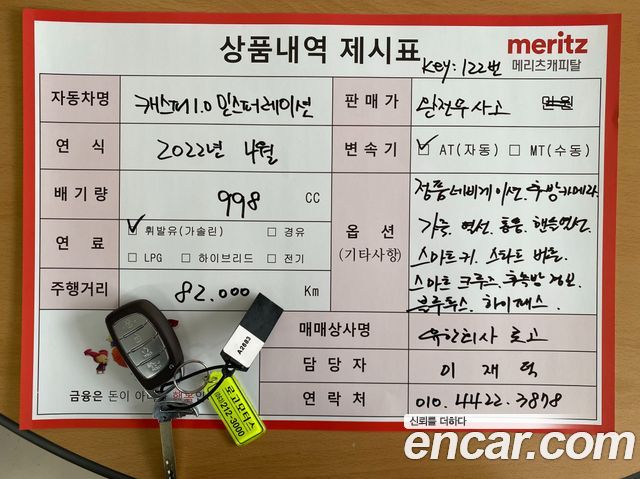 상품내역 제시표
meritz
메리츠캐피탈
Key:122번
자동차명 캐스퍼 1.0 인스퍼레이션
판매가 실전무사고 만원
연 식 2022년 4월
변속기 ☑ AT(자동) □ MT(수동)
배기량 998 CC
연 료 ☑ 휘발유(가솔린) □ 경유
□ LPG □ 하이브리드 □ 전기
주행거리 82.000 Km
옵 션
(기타사항)
정품네비게이션. 후방카메라.
가죽. 열선. 통풍. 핸들열선.
스마트키. 스타트 버튼.
스마트 크루즈. 후측방 경보.
블루투스. 하이패스.
매매상사명 유한회사 로고
담 당 자 이 재 덕
연 락 처 010. 4422. 3878
금융은 돈이 아
A2883
로고모터스
212-3000
신뢰를 더하다
encar.com